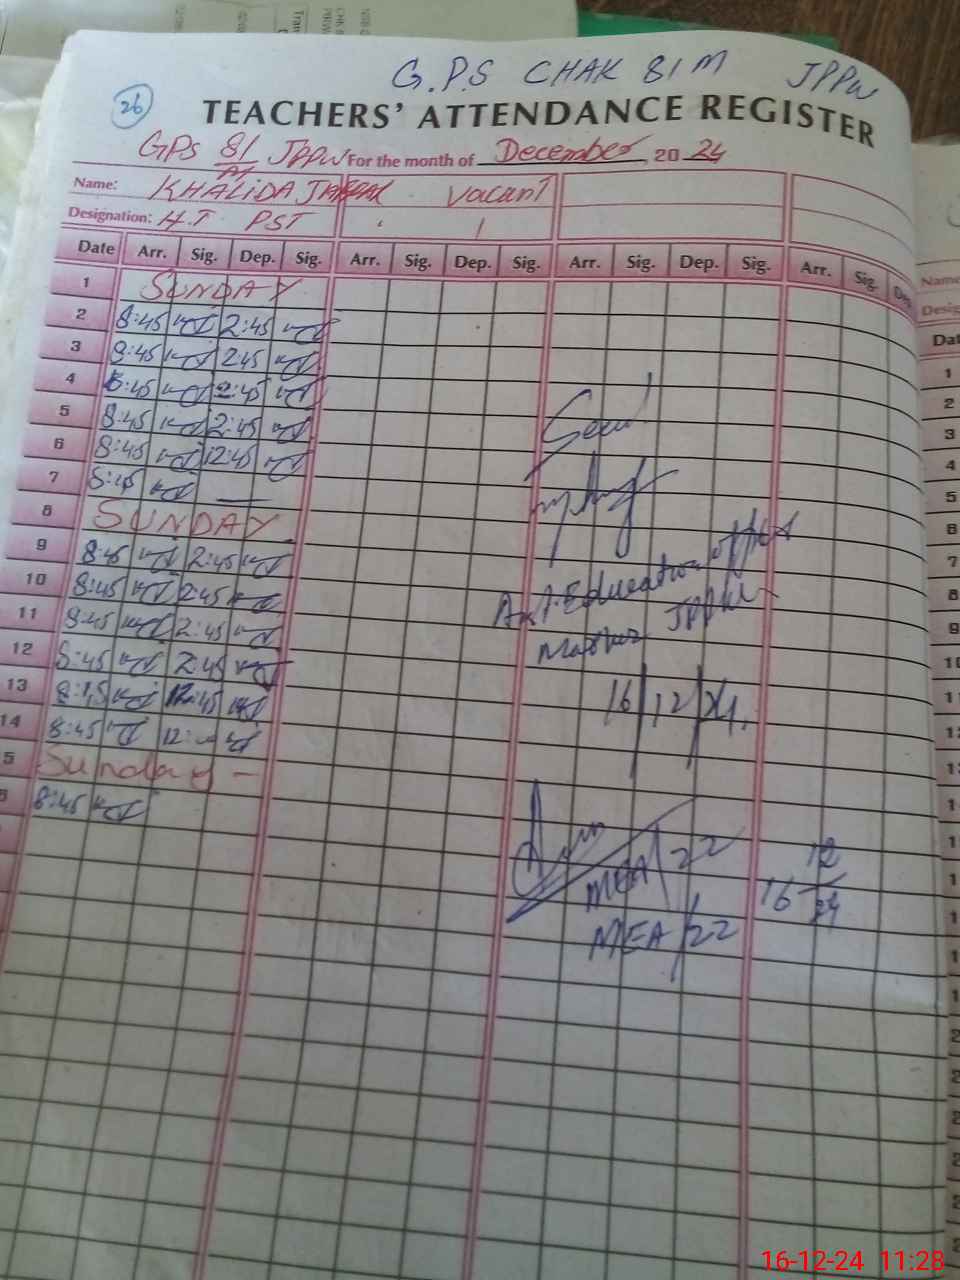 G.P.S CHAK 81M JPPW
26
TEACHERS' ATTENDANCE REGISTER
GPS 81/M JPPW For the month of December 2024
Name: KHALIDA Vacant
Designation: H.T PST
Date Arr. Sig. Dep. Sig. Arr. Sig. Dep. Sig. Arr. Sig. Dep. Sig. Arr. Sig.
1 SUNDAY
2 8:45 2:45
3 8:45 2:45
4 8:45 2:45
5 8:45 2:45
6 8:45 12:45
7 8:45
8 SUNDAY
9 8:45 2:45
10 8:45 2:45
11 8:45 2:45
12 8:45 2:45
13 8:45 12:45
14 8:45
5 Sunday -
8:45
Seen
Asst. Education officer
JPPW
16/12/24.
MEA/22
MEA/22
16 12/24
Name
Desig
Dat
1
2
3
4
5
6
7
8
9
10
16-12-24 11:28